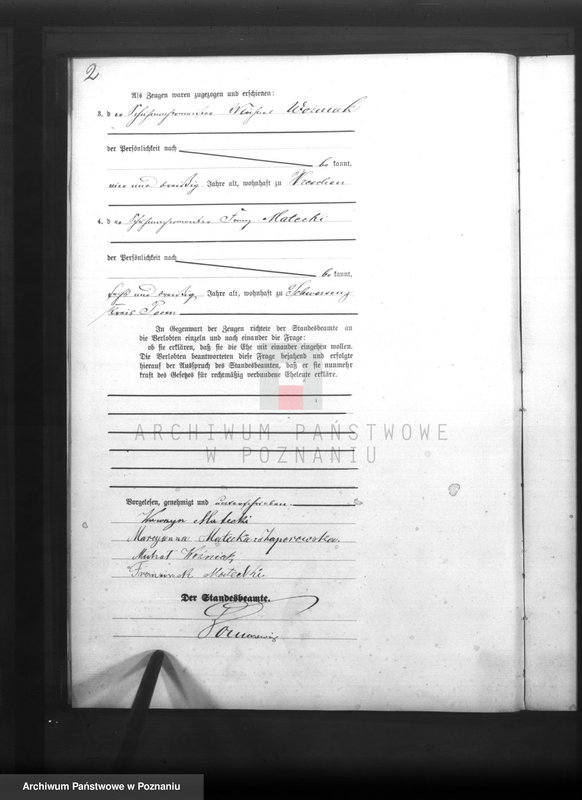 2
Als Zeugen waren zugezogen und erschienen:
3. der Schuhmachermeister Michael Woźniak
der Persönlichkeit nach
be kannt,
vier und dreißig Jahre alt, wohnhaft zu Wreschen
4. der Schuhmachermeister Franz Malecki
der Persönlichkeit nach
be kannt,
sechs und dreißig Jahre alt, wohnhaft zu Schwersenz
Kreis Posen
In Gegenwart der Zeugen richtete der Standesbeamte an
die Verlobten einzeln und nach einander die Frage:
ob sie erklären, daß sie die Ehe mit einander eingehen wollen.
Die Verlobten beantworteten diese Frage bejahend und erfolgte
hierauf der Ausspruch des Standesbeamten, daß er sie nunmehr
kraft des Gesetzes für rechtmäßig verbundene Eheleute erkläre.
ARCHIWUM PAŃSTWOWE
W POZNANIU
Vorgelesen, genehmigt und unterschrieben
Malecki
Maryanna Malecka
Michał Woźniak
Franciszek Malecki
Der Standesbeamte.
Archiwum Państwowe w Poznaniu